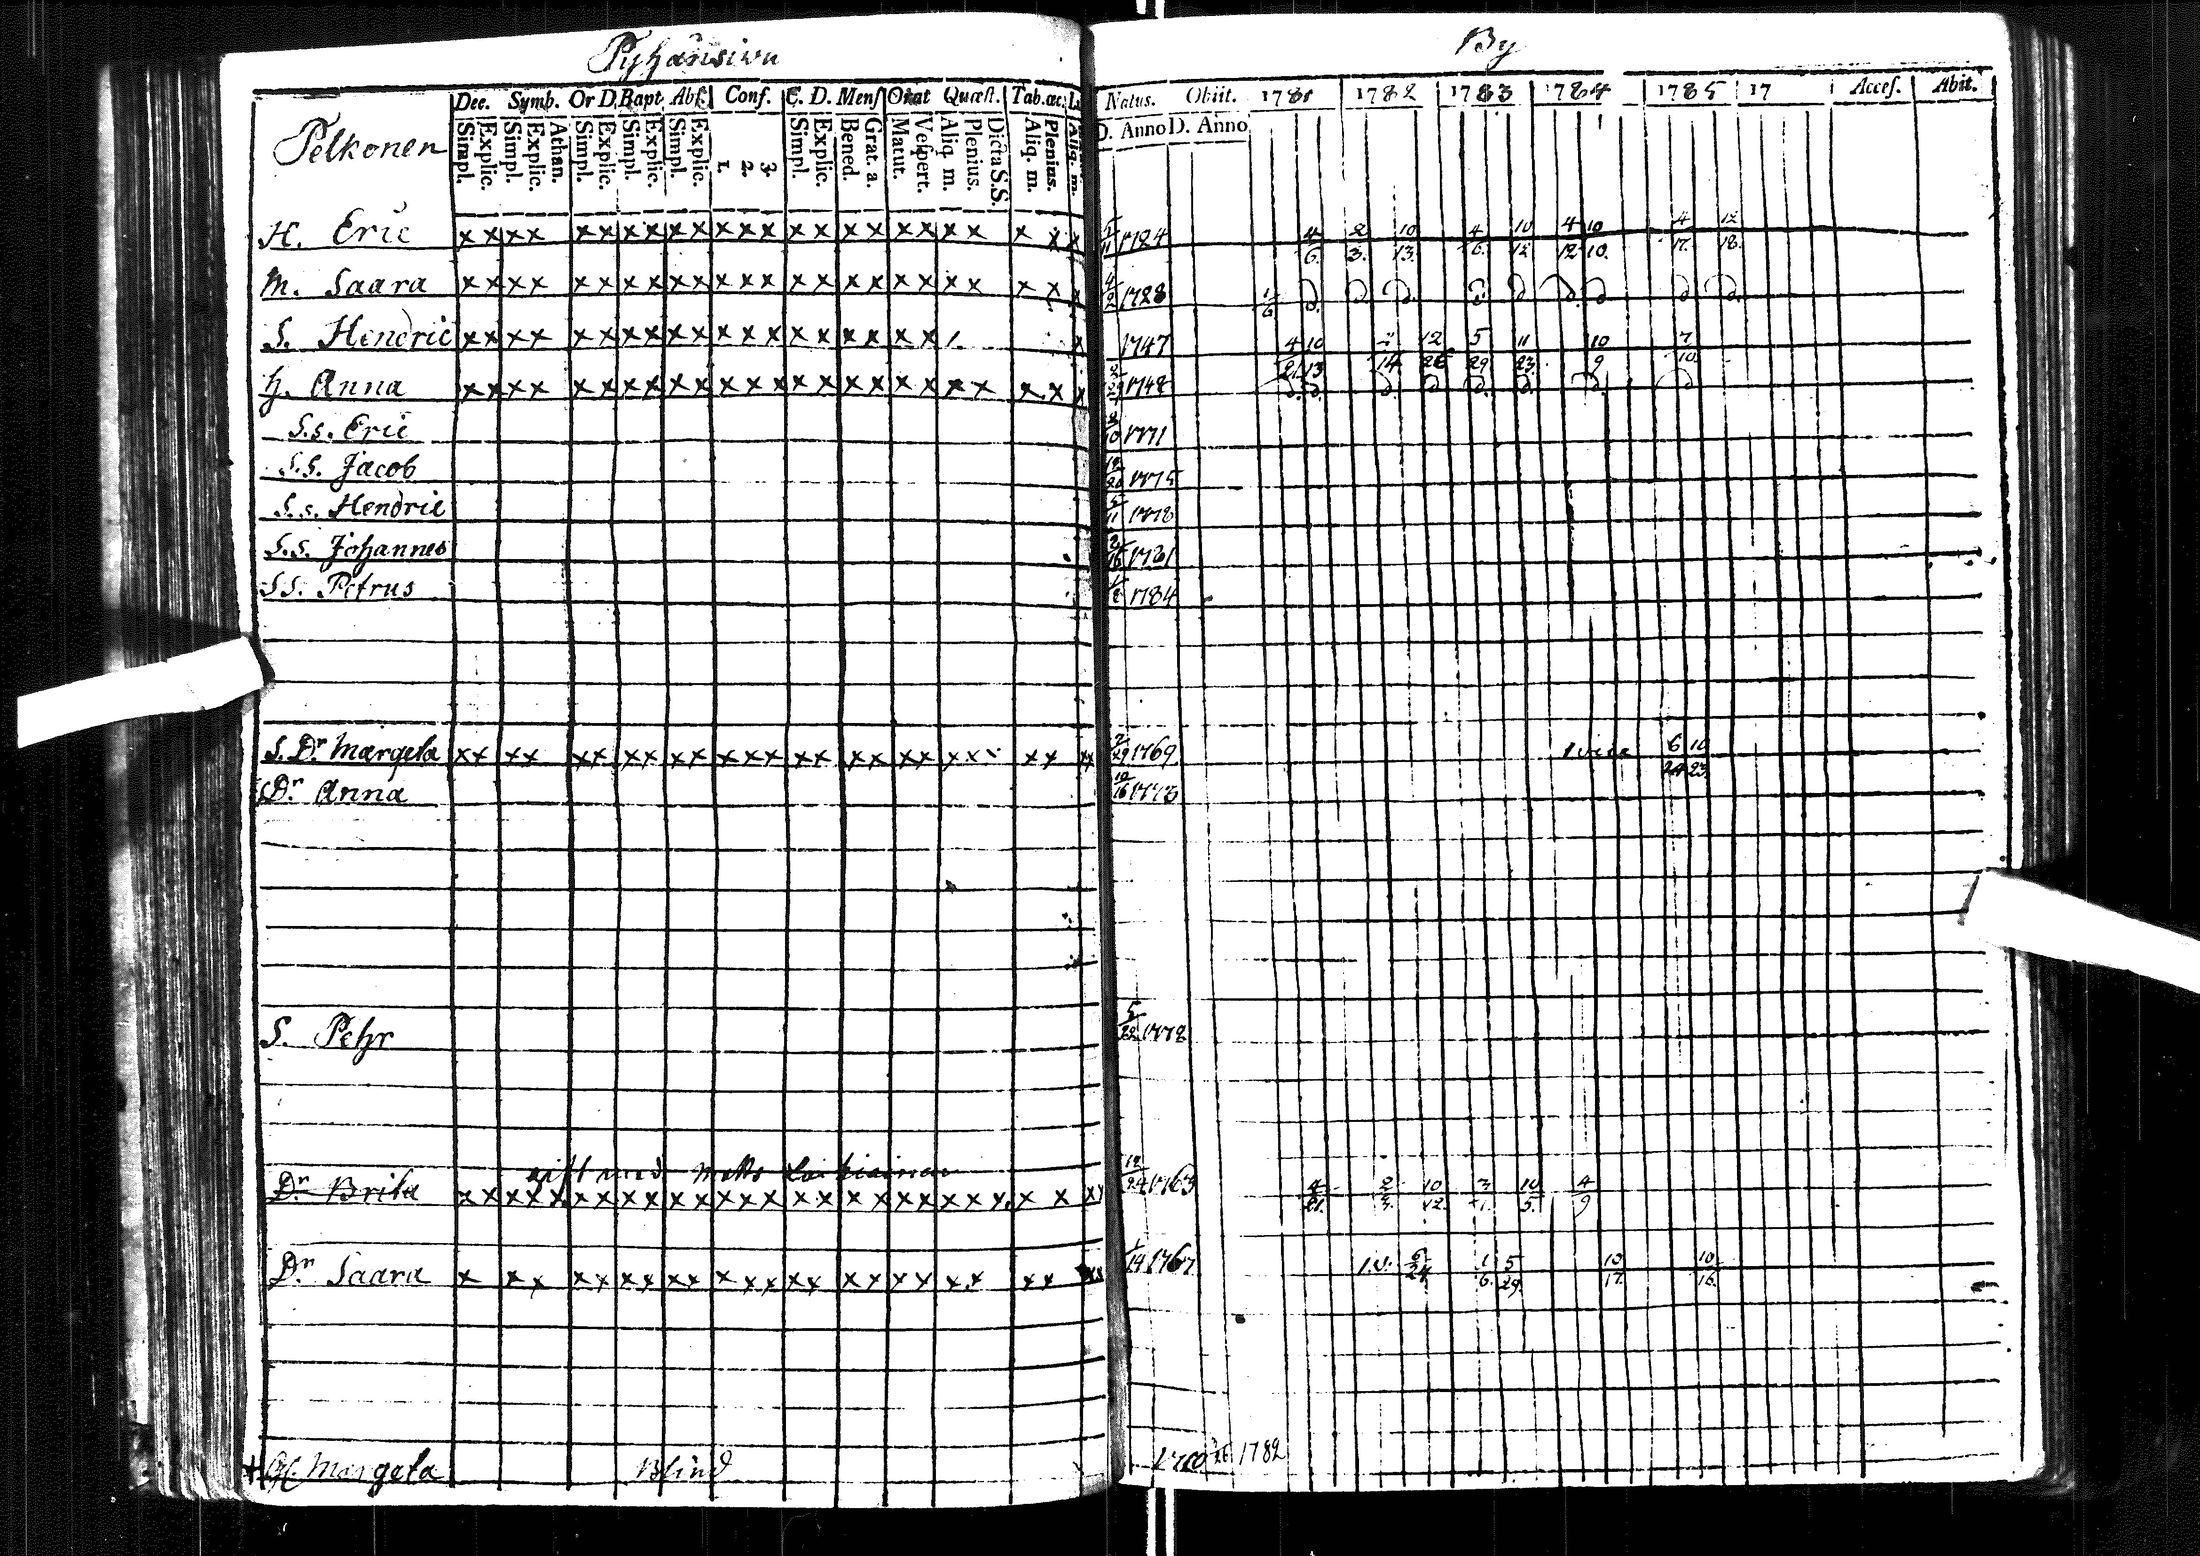 Pyhänsivu By
Dec. Symb. Or D. Bapt Abs. Conf. C. D. Mens Orat Quæst. Tab. œc. Natus. Obiit. 1781 1782 1783 1784 1785 17 Acces. Abit.
Pelkonen Simpl. Explic. Simpl. Explic. Athan. Simpl. Explic. Simpl. Explic. Simpl. Explic. 1. 2. 3. Simpl. Explic. Bened. Grat. a. Matut. Vespert. Aliq. m. Plenius. Dicta S.S. Aliq. m. Plenius. Aliq. m. D. Anno D. Anno
H. Eric x x x x x x x x x x x x x x x x x x x x x x x x 5/11 1724 4/6. 2/3. 10/13. 4/6. 10/12 4/12 10/10. 4/17. 12/18.
M. Saara x x x x x x x x x x x x x x x x x x x x x x x x 4/2 1728 1/6
S. Hendric x x x x x x x x x x x x x x x x x x x / x 1747 4/21 10/13 12/26 5/29 11/23 10/9 7/10
H. Anna x x x x x x x x x x x x x x x x x x x x x x x x 2/29 1748
S.s. Eric 8/10 1771
S.s. Jacob 12/20 1775
S.s. Hendric 5/11 1778
S.s. Johannes 2/16 1781
S.S. Petrus 1/8 1784
S. Dr Margeta x x x x x x x x x x x x x x x x x x x x x x x x 2/29 1769 6/24 10/23
Dr Anna 10/16 1773
S. Pehr 5/22 1772
gift med Matts
Dr Brita x x x x x x x x x x x x x x x x x x x x x x x x x x 12/24 1763 4/21. 2/3. 10/12. 3/1. 10/5. 4/9
Dr Saara x x x x x x x x x x x x x x x x x x x x x x x x 1/14 1767. 6/24 1/6. 5/29. 10/17. 10/16.
+ Margeta Blind 1782